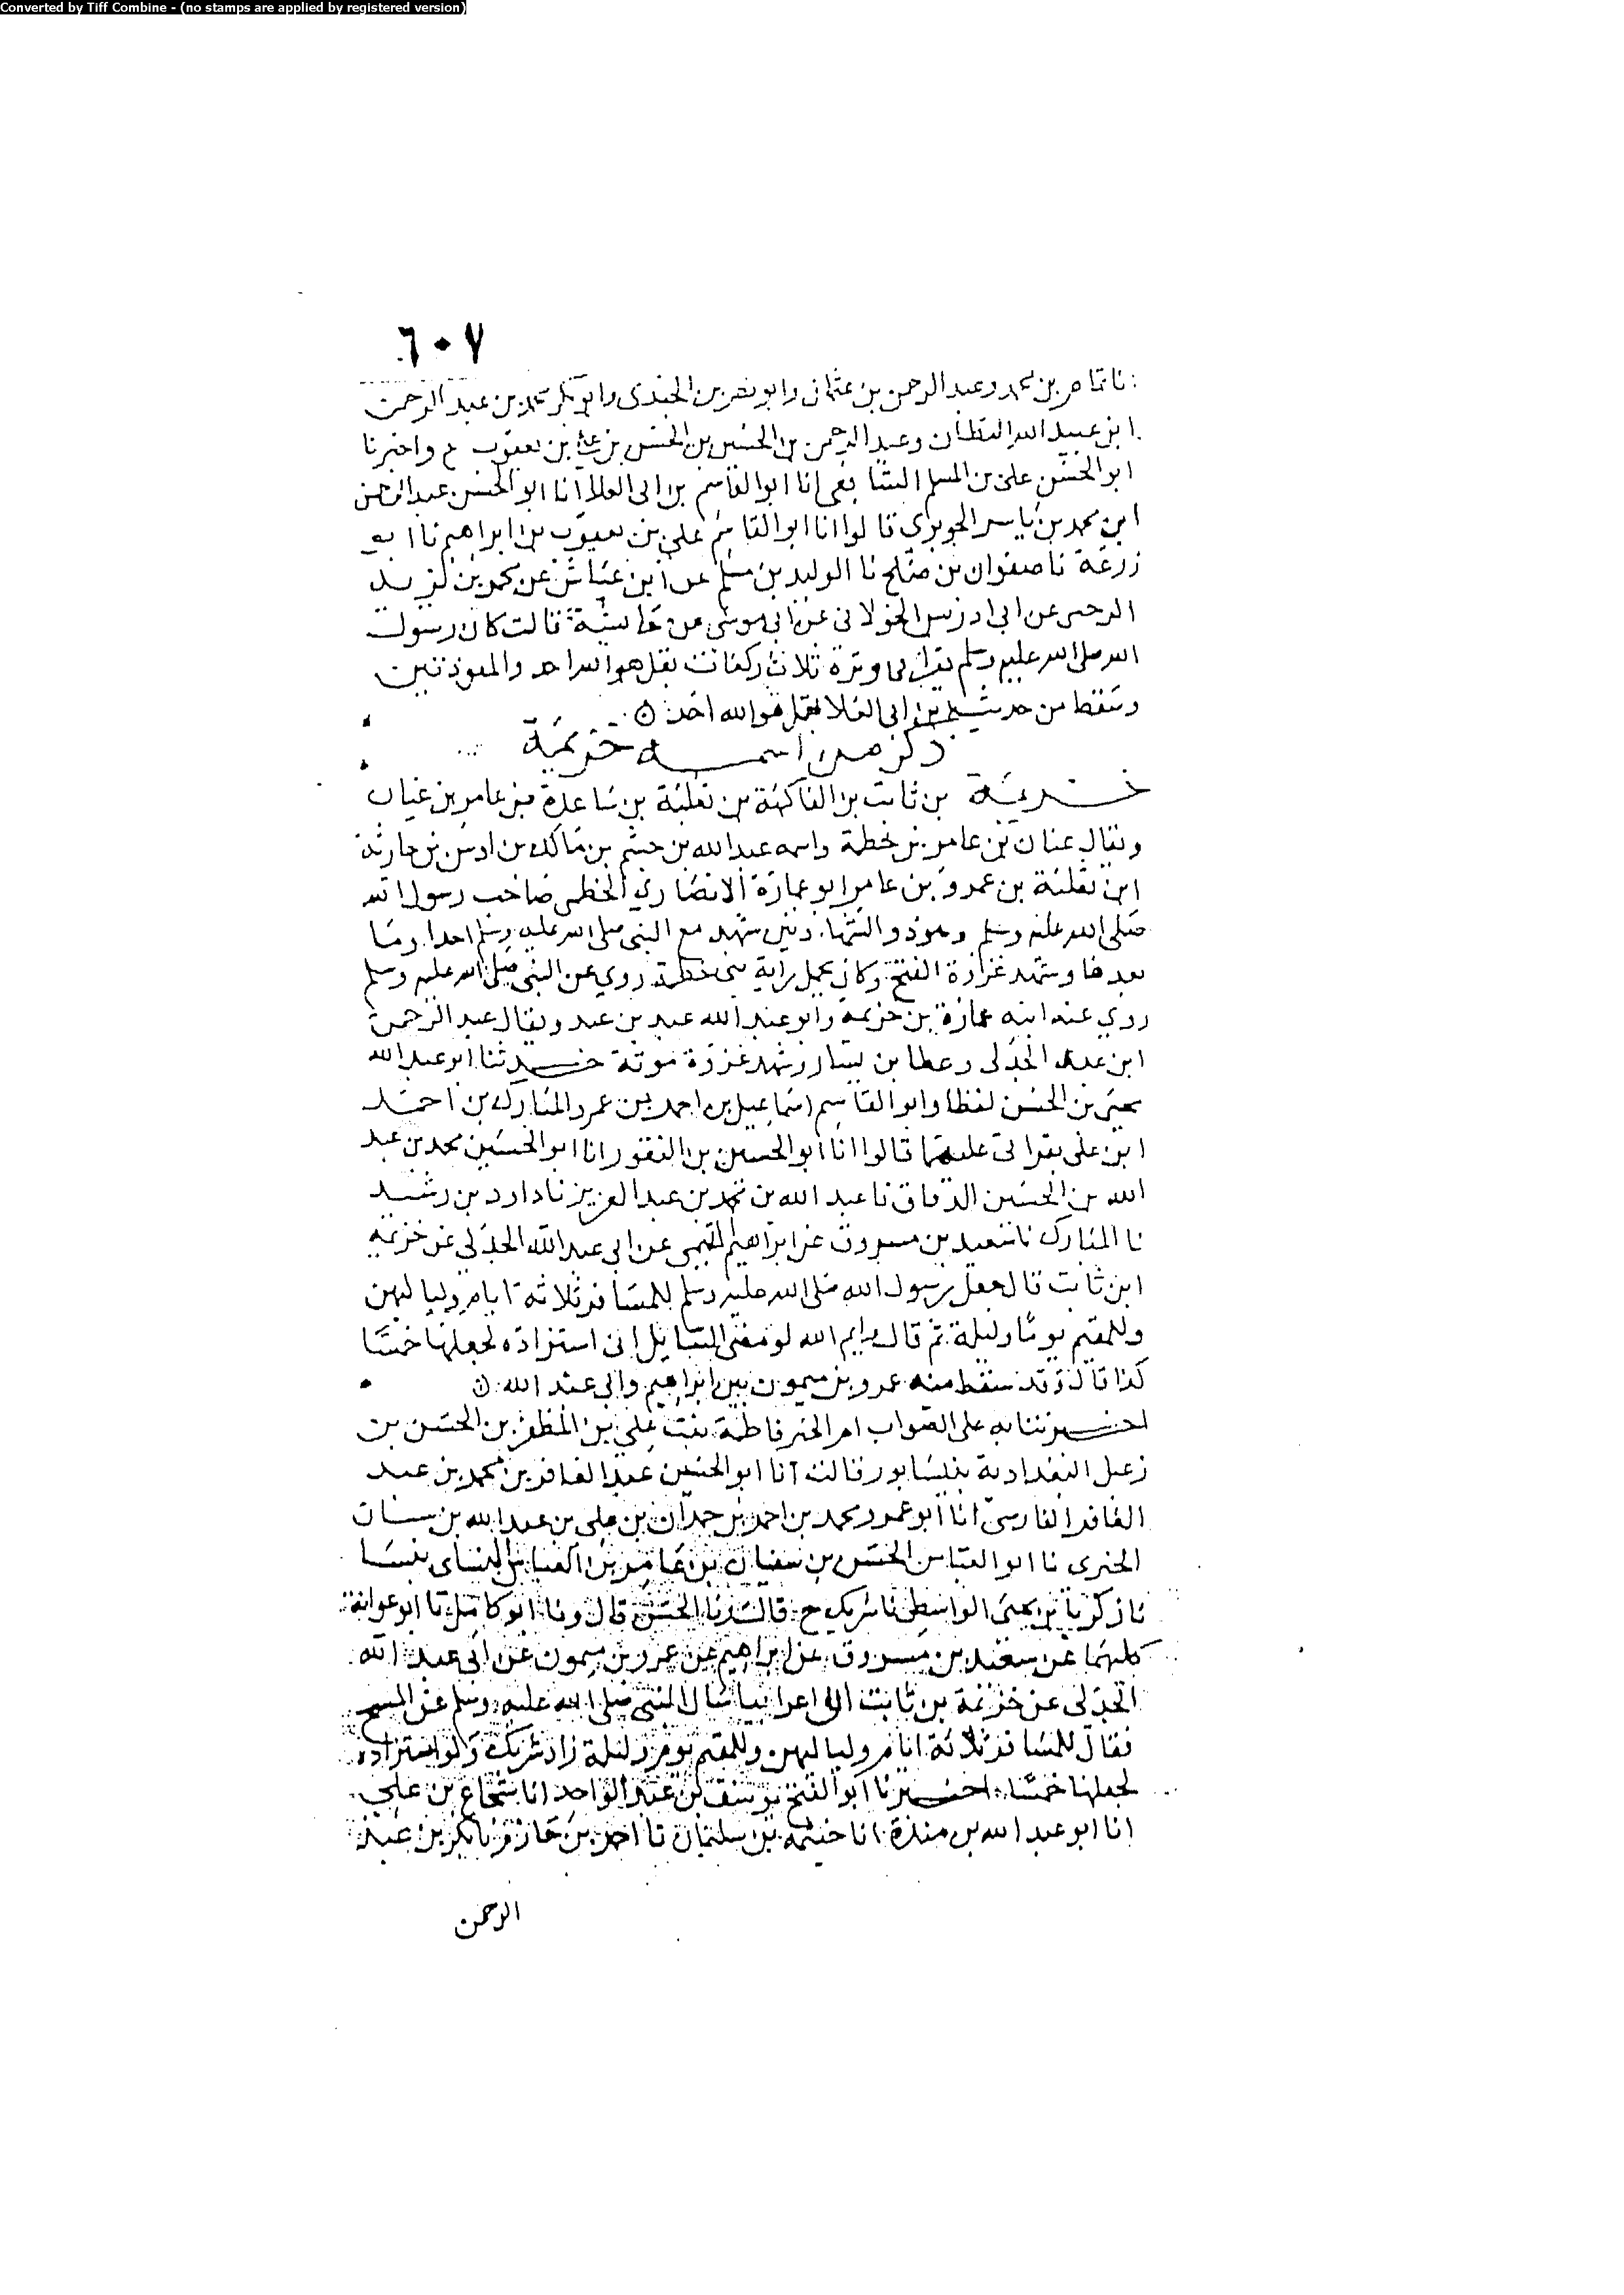 Converted by Tiff Combine - (no stamps are applied by registered version)
٦٠٧
نا تمام بن محمد وعبد الرحمن بن عثمان وابو نصر بن الجندى وابو بكر محمد بن عبد الرحمن
ابن عبيد الله القطان وعبد الرحمن بن الحسين بن الحسن بن علي بن يعقوب ح واخبرنا
ابو الحسن على بن المسلم الشافعى انا ابو القاسم بن ابى العلا انا ابو الحسن عبد الرحمن
ابن محمد بن ياسر الجوبرى قالوا انا ابو القاسم على بن يعقوب بن ابراهيم نا ابو
زرعة نا صفوان بن صالح نا الوليد بن مسلم عن ابن عياش عن محمد بن يزيد
الرحبى عن ابى ادريس الخولانى عن ابى موسى عن عايشة قالت كان رسول
الله صلى الله عليه وسلم يقرا فى وتره ثلاث ركعات بقل هو الله احد والمعوذتين
وسقط من حديث بن ابى العلا بقل هو الله احد
ذكر من اسمه خزيمة
خزيمة بن ثابت بن الفاكهة بن ثعلبة بن ساعدة بن عامر بن غيان
ويقال عنان بن عامر بن خطمة واسمه عبد الله بن جشم بن مالك بن اوس بن حارثة
ابن ثعلبة بن عمرو بن عامر ابو عمارة الانصاري الخطمى صاحب رسول الله
صلى الله عليه وسلم وهو ذو الشهادتين شهد مع النبى صلى الله عليه وسلم احدا وما
بعدها وشهد غزاة الفتح وكان يحمل راية بنى خطمة روي عن النبى صلى الله عليه وسلم
روي عنه ابنه عمارة بن خزيمة وابو عبد الله عبد بن عبد ويقال عبد الرحمن
ابن عبد الجدلى وعطا بن يسار وشهد غزوة موتة حدثنا ابو عبد الله
يحيى بن الحسن لفظا وابو القاسم اسماعيل بن احمد بن عمر والمبارك بن احمد
ابن على بقراتى عليهما قالوا انا ابو الحسين بن النقور انا ابو الحسين محمد بن عبد
الله بن الحسين الدقاق نا عبد الله بن محمد بن عبد العزيز نا داود بن رشيد
نا المبارك نا سعيد بن مسروق عن ابراهيم التيمى عن ابى عبد الله الجدلى عن خزيمة
ابن ثابت قال جعل رسول الله صلى الله عليه وسلم للمسافر ثلاثة ايام ولياليهن
وللمقيم يوما وليلة ثم قال وايم الله لو مضى السايل فى استزاده لجعلها خمسا
كذا قال وقد سقط منه عمرو بن ميمون بين ابراهيم وابى عبد الله
اخبرتنا به على الصواب ام الخير فاطمة بنت على بن المظفر بن الحسن بن
زعبل البغدادية بنيسابور قالت انا ابو الحسين عبد الغافر بن محمد بن عبد
الغافر الفارسى انا ابو عمرو محمد بن احمد بن حمدان بن على بن عبد الله بن سنان
الحيرى نا ابو العباس الحسن بن سفيان بن عامر بن العباس النساى بنسا
نا زكريا بن يحيى الواسطى نا شريك ح قالت ونا الحسن قال ونا ابو كامل نا ابو عوانة
كليهما عن سعيد بن مسروق عن ابراهيم عن عمرو بن ميمون عن ابى عبد الله
الجدلى عن خزيمة بن ثابت ان اعرابيا سال النبى صلى الله عليه وسلم عن المسح
فقال للمسافر ثلاثة ايام ولياليهن وللمقيم يوم وليلة زاد شريك ولو استزاده
لجعلها خمسا اخبرنا ابو الفتح يوسف بن عبد الواحد انا شجاع بن على
انا ابو عبد الله بن مندة انا خيثمة بن سليمان نا احمد بن حازم نا بكر بن عبد
الرحمن